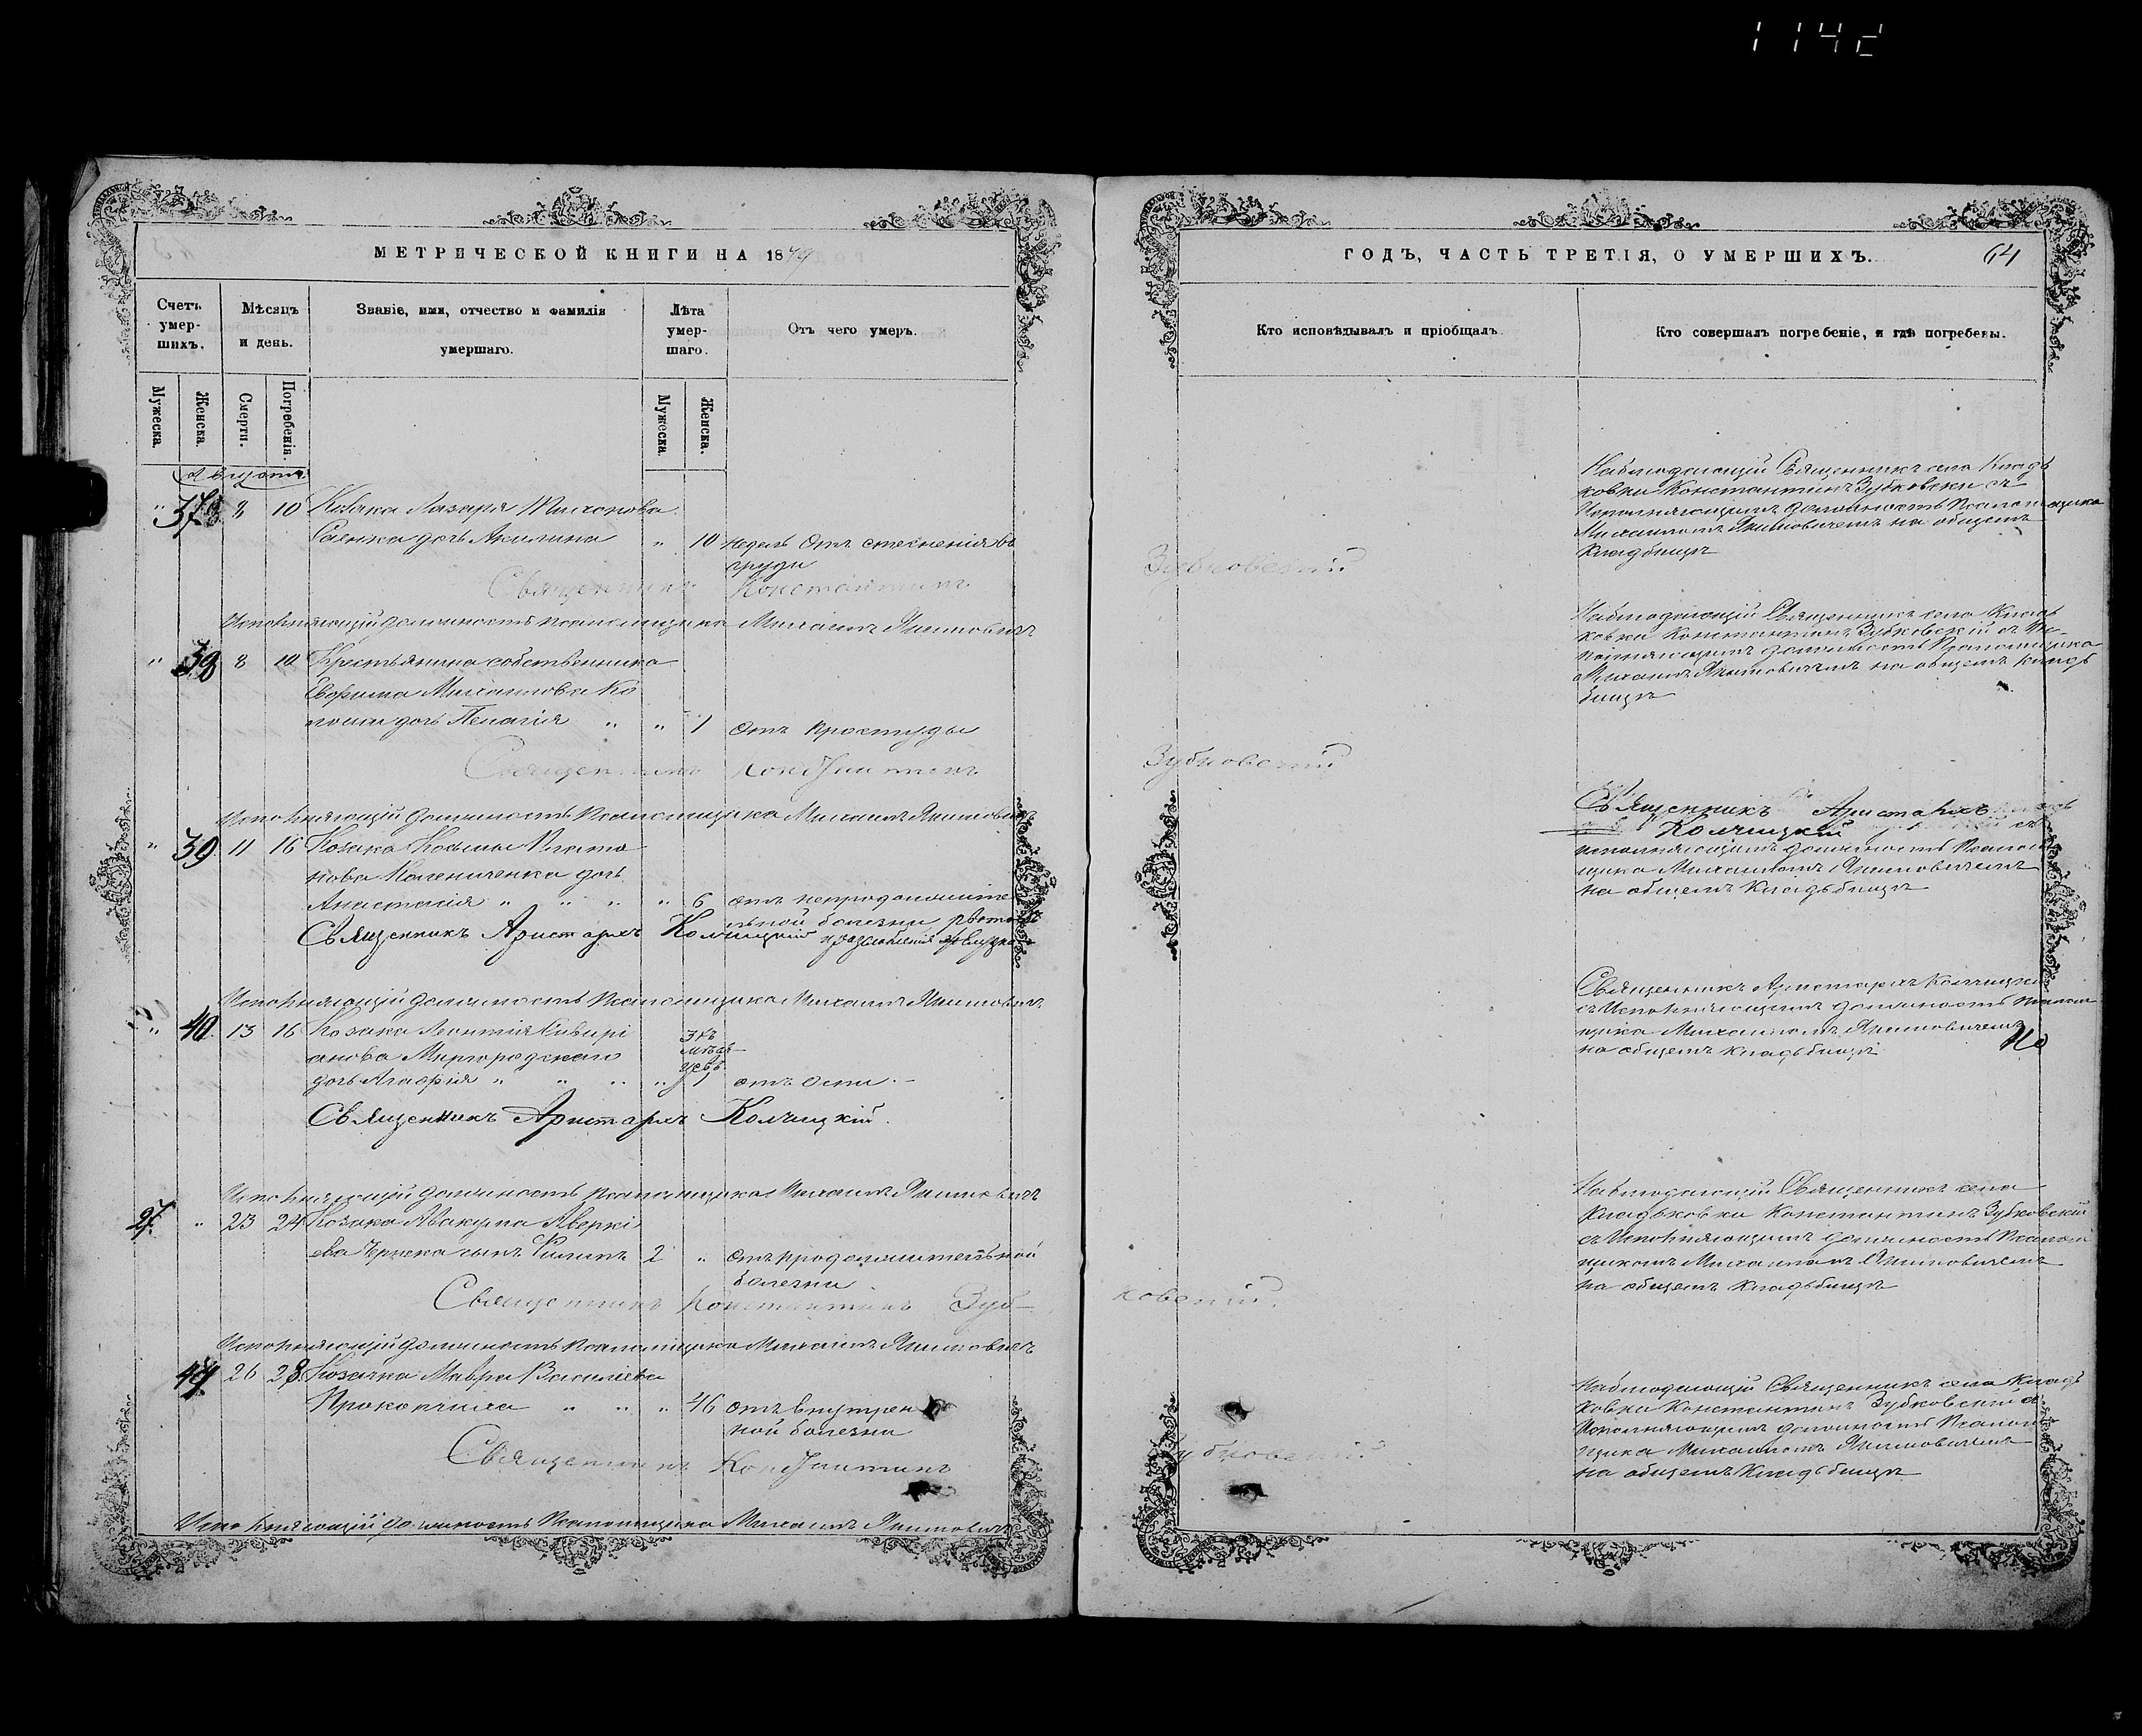 1142
МЕТРИЧЕСКОЙ КНИГИ НА 1879
ГОДЪ, ЧАСТЬ ТРЕТІЯ, О УМЕРШИХЪ.
64
Счетъ умер-шихъ.
Мѣсяцъ и день.
Званіе, имя, отчество и фамилія умершаго.
Лѣта умер-шаго.
Отъ чего умеръ.
Кто исповѣдывалъ и пріобщалъ
Кто совершалъ погребеніе, и гдѣ погребены.
Мужеска.
Женска.
Смерти.
Погребенія.
Мужеска
Женска.
Августъ
" 37 8 10 Козака Лазаря
дочь Акилина " 10 недель Отъ стесненія въ
груди
Священникъ Константинъ
Зубковскій
Наблюдающій Священникъ села Кладь
ковки Константинъ Зубковскій съ
Исполняющимъ должность Псаломщика
Михаиломъ Якимовичемъ на общемъ
Кладбищѣ
Исполняющій должность псаломщика Михаилъ Якимовичъ
" 38 8 10 Крестьянина собственника
Евфима Михаилова Ко
дочь Пелагія " " 1 отъ простуды
Священникъ Константинъ
Зубковскій
Наблюдающій Священникъ села Кладь
ковки Константинъ Зубковскій съ Ис-
полняющимъ должность Псаломщика
Михаиломъ Якимовичемъ на общемъ кладь
бищѣ
Исполняющій должность Псаломщика Михаилъ Якимовичъ
" 39 11 16 Козака Космы Плато
нова дочь
Анастасія " " " " 6 отъ непродолжите
льной болезни
Священникъ Аристархъ Колчицкій
Священникъ Аристархъ
Колчицкій съ
исполняющимъ должность Псалом
щика Михаиломъ Якимовичемъ
на общемъ Кладьбищѣ
Исполняющій должность Псаломщика Михаилъ Якимовичъ
" 40 13 16 Козака Леонтія Кипрі
анова Миргородскаго
дочь Агафія " " " " 1 отъ оспи.
Священникъ Аристархъ Колчицкій.
Священникъ Аристархъ Колчицкій
съ Исполняющимъ должность Псалом
щика Михаиломъ Якимовичемъ
на общемъ кладьбищѣ
Исполняющій должность Псаломщика Михаилъ Якимовичъ
27. " 23 24 Козака Авакума Аверкі
ева сынъ Филипъ 2 " отъ продолжительной
болезни
Священникъ Константинъ Зуб-
ковскій.
Наблюдающій Священникъ села
Кладьковки Константинъ Зубковскій
съ Исполняющимъ должность Псалом
щикомъ Михаиломъ Якимовичемъ
на общемъ Кладьбищѣ
Исполняющій должность Псаломщика Михаилъ Якимовичъ
41. 26 28 Козачка Мавра Василіева
" " " 46 отъ внутрен
ной болезни
Священникъ Константинъ
Зубковскій.
Наблюдающій Священникъ села Кладь
ковки Константинъ Зубковскій съ
Исполняющимъ должность Псалом
щика Михаиломъ Якимовичемъ
на общемъ Кладьбищѣ
Исполняющій должность Псаломщика Михаилъ Якимовичъ